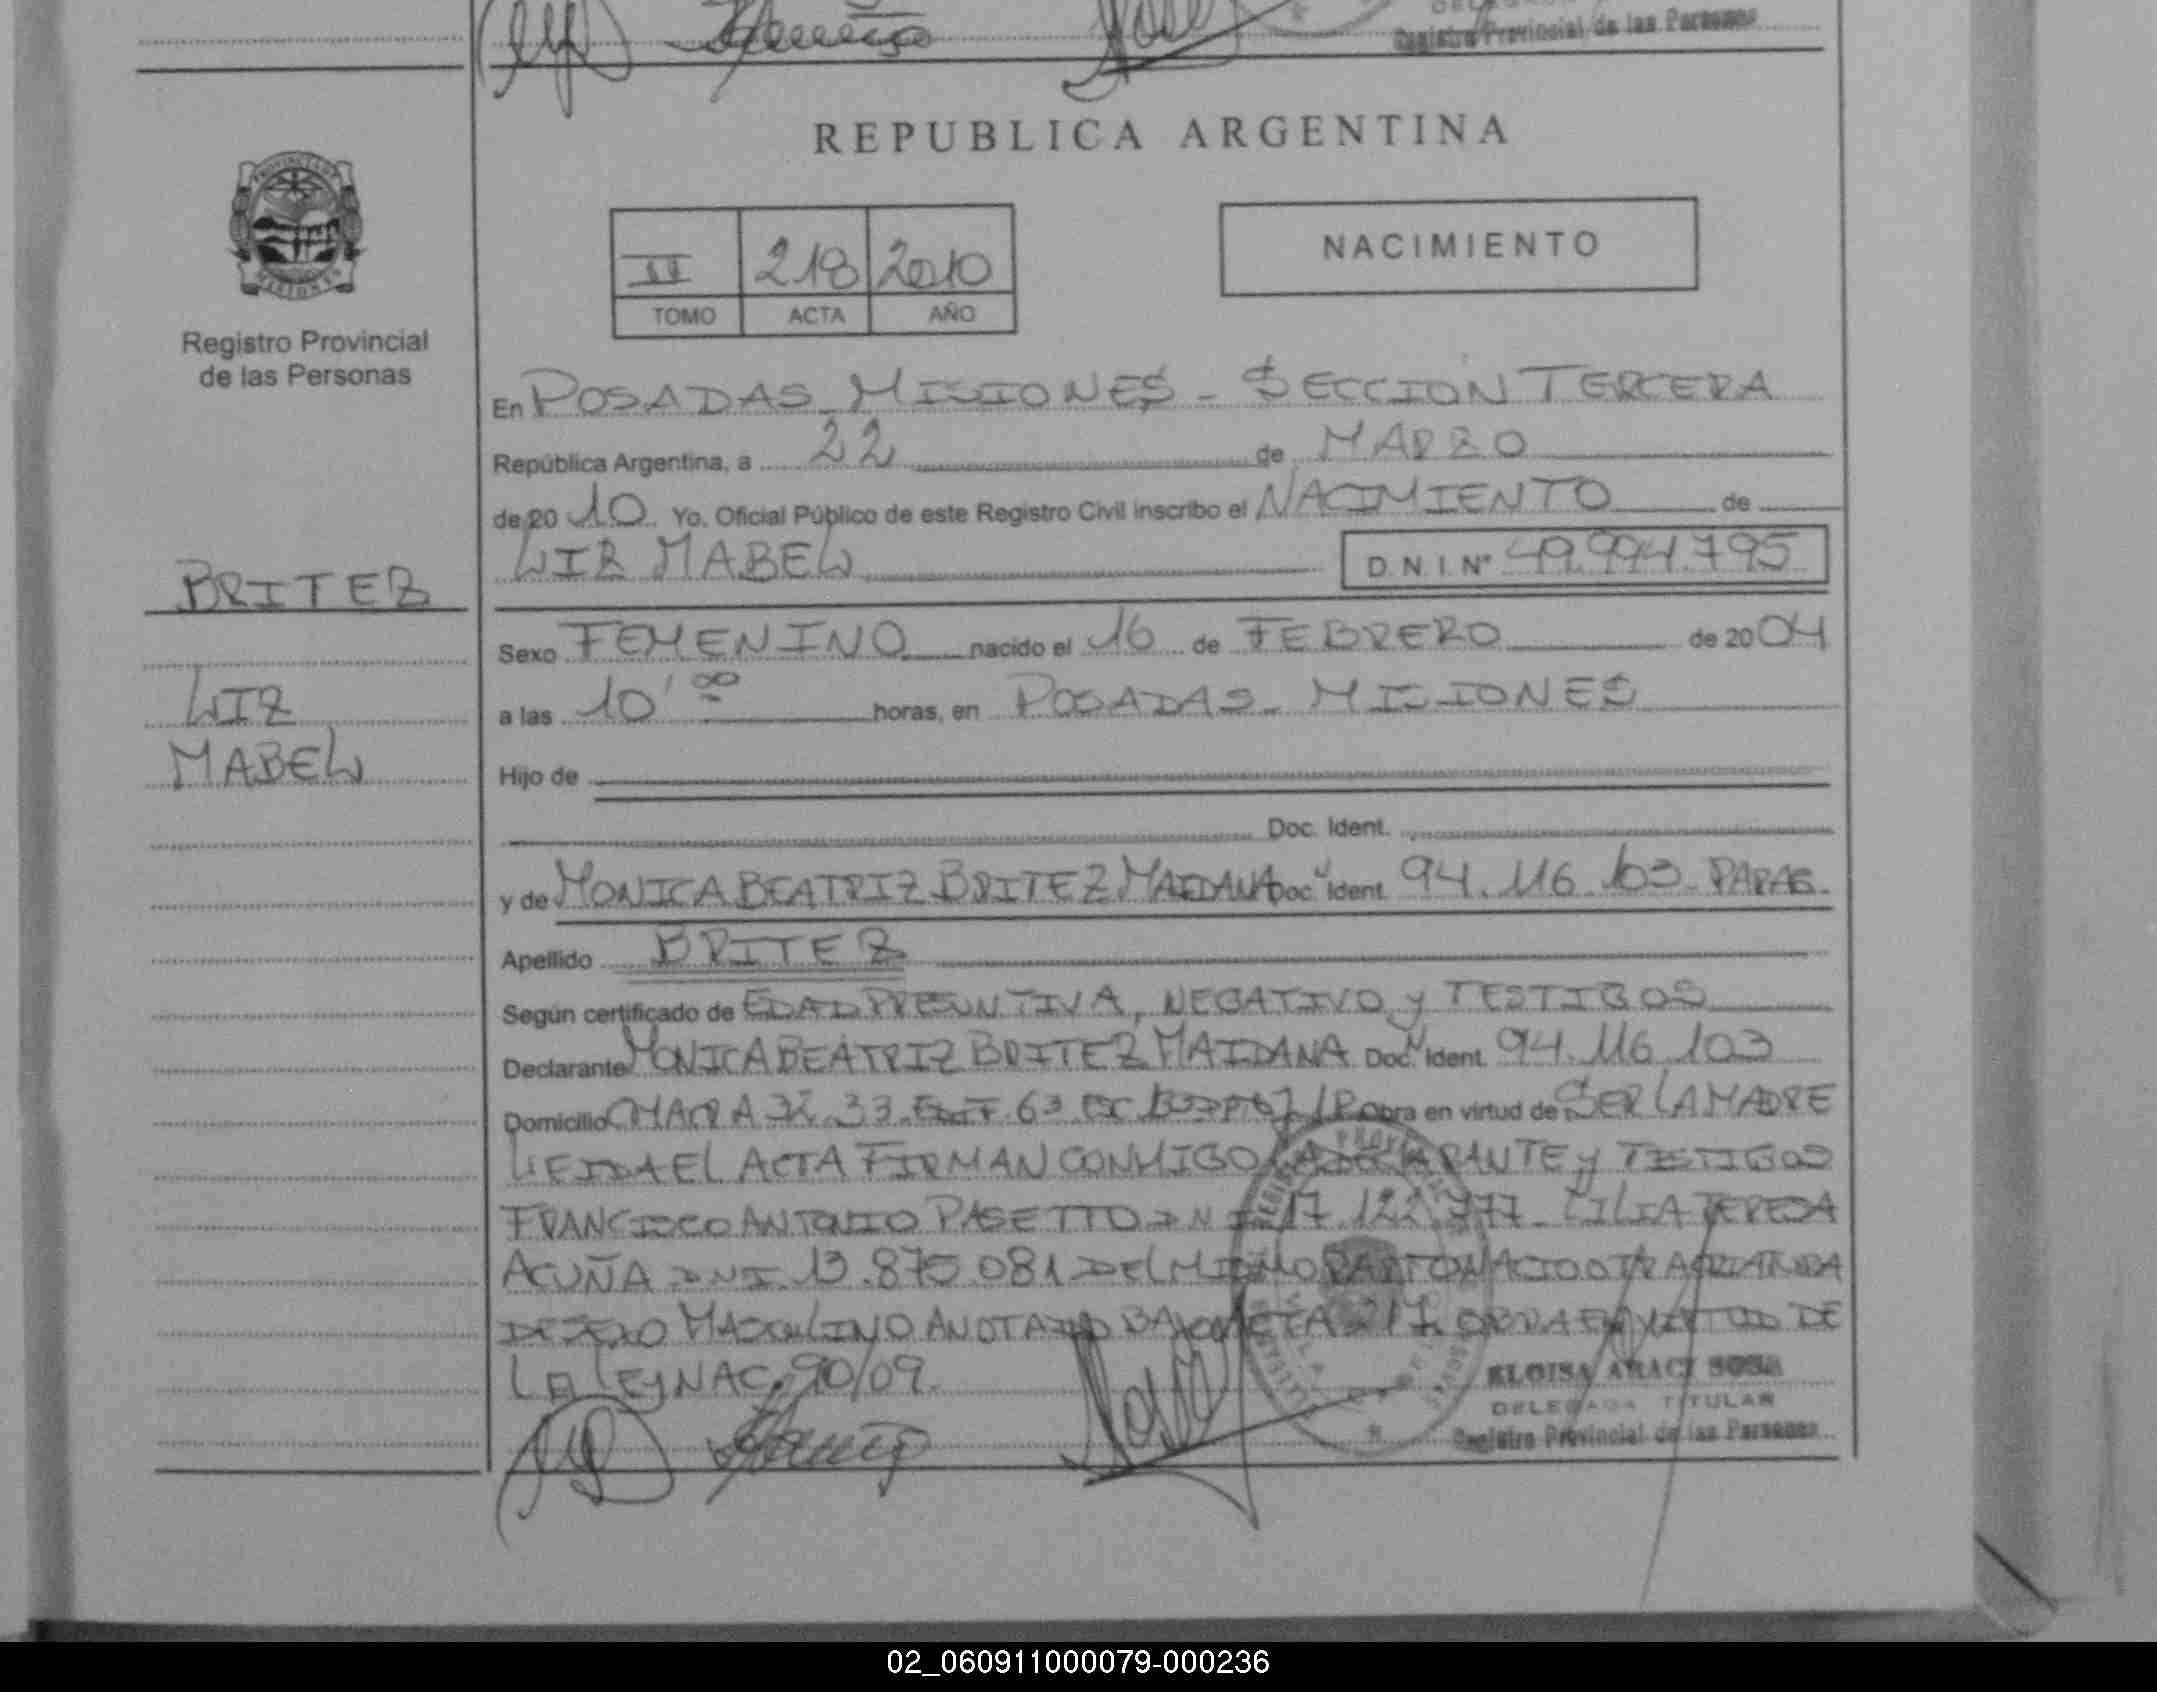 Registro Provincial de las Personas
REPUBLICA ARGENTINA
II 218 2010
TOMO ACTA AÑO
NACIMIENTO
Registro Provincial
de las Personas
En POSADAS - MISIONES - SECCION TERCERA
República Argentina, a 22 de MARZO
de 20 10 Yo. Oficial Público de este Registro Civil inscribo el NACIMIENTO de
LIZ MABEL D.N.I. Nº 49.994.795
BRITEZ
LIZ
MABEL
Sexo FEMENINO nacido el 16 de FEBRERO de 20 04
a las 10'00 horas, en POSADAS - MISIONES
Hijo de
Doc. Ident.
y de MONICA BEATRIZ BRITEZ MAIDANA Doc. Ident. 94.116.103 - PARAG.
Apellido BRITEZ
Según certificado de EDAD PRESUNTIVA, NEGATIVO y TESTIGOS
Declarante MONICA BEATRIZ BRITEZ MAIDANA Doc. Ident. 94.116.103
Domicilio CHACRA 32.33 EDIF 63 obra en virtud de SER LA MADRE
LEIDA EL ACTA FIRMAN CONMIGO LA DECLARANTE y TESTIGOS
FRANCISCO ANTONIO PASETTO DNI 17.122.777 - LILIA TERESA
ACUÑA DNI 13.875.081 DEL MISMO PARTO NACIO OTRA CRIATURA
DE SEXO MASCULINO ANOTADO BAJO ACTA 217. OBRA EN VIRTUD DE
LA LEY NAC. 90/09.
ELOISA ARACI SOSA
DELEGADA TITULAR
Registro Provincial de las Personas
02_060911000079-000236